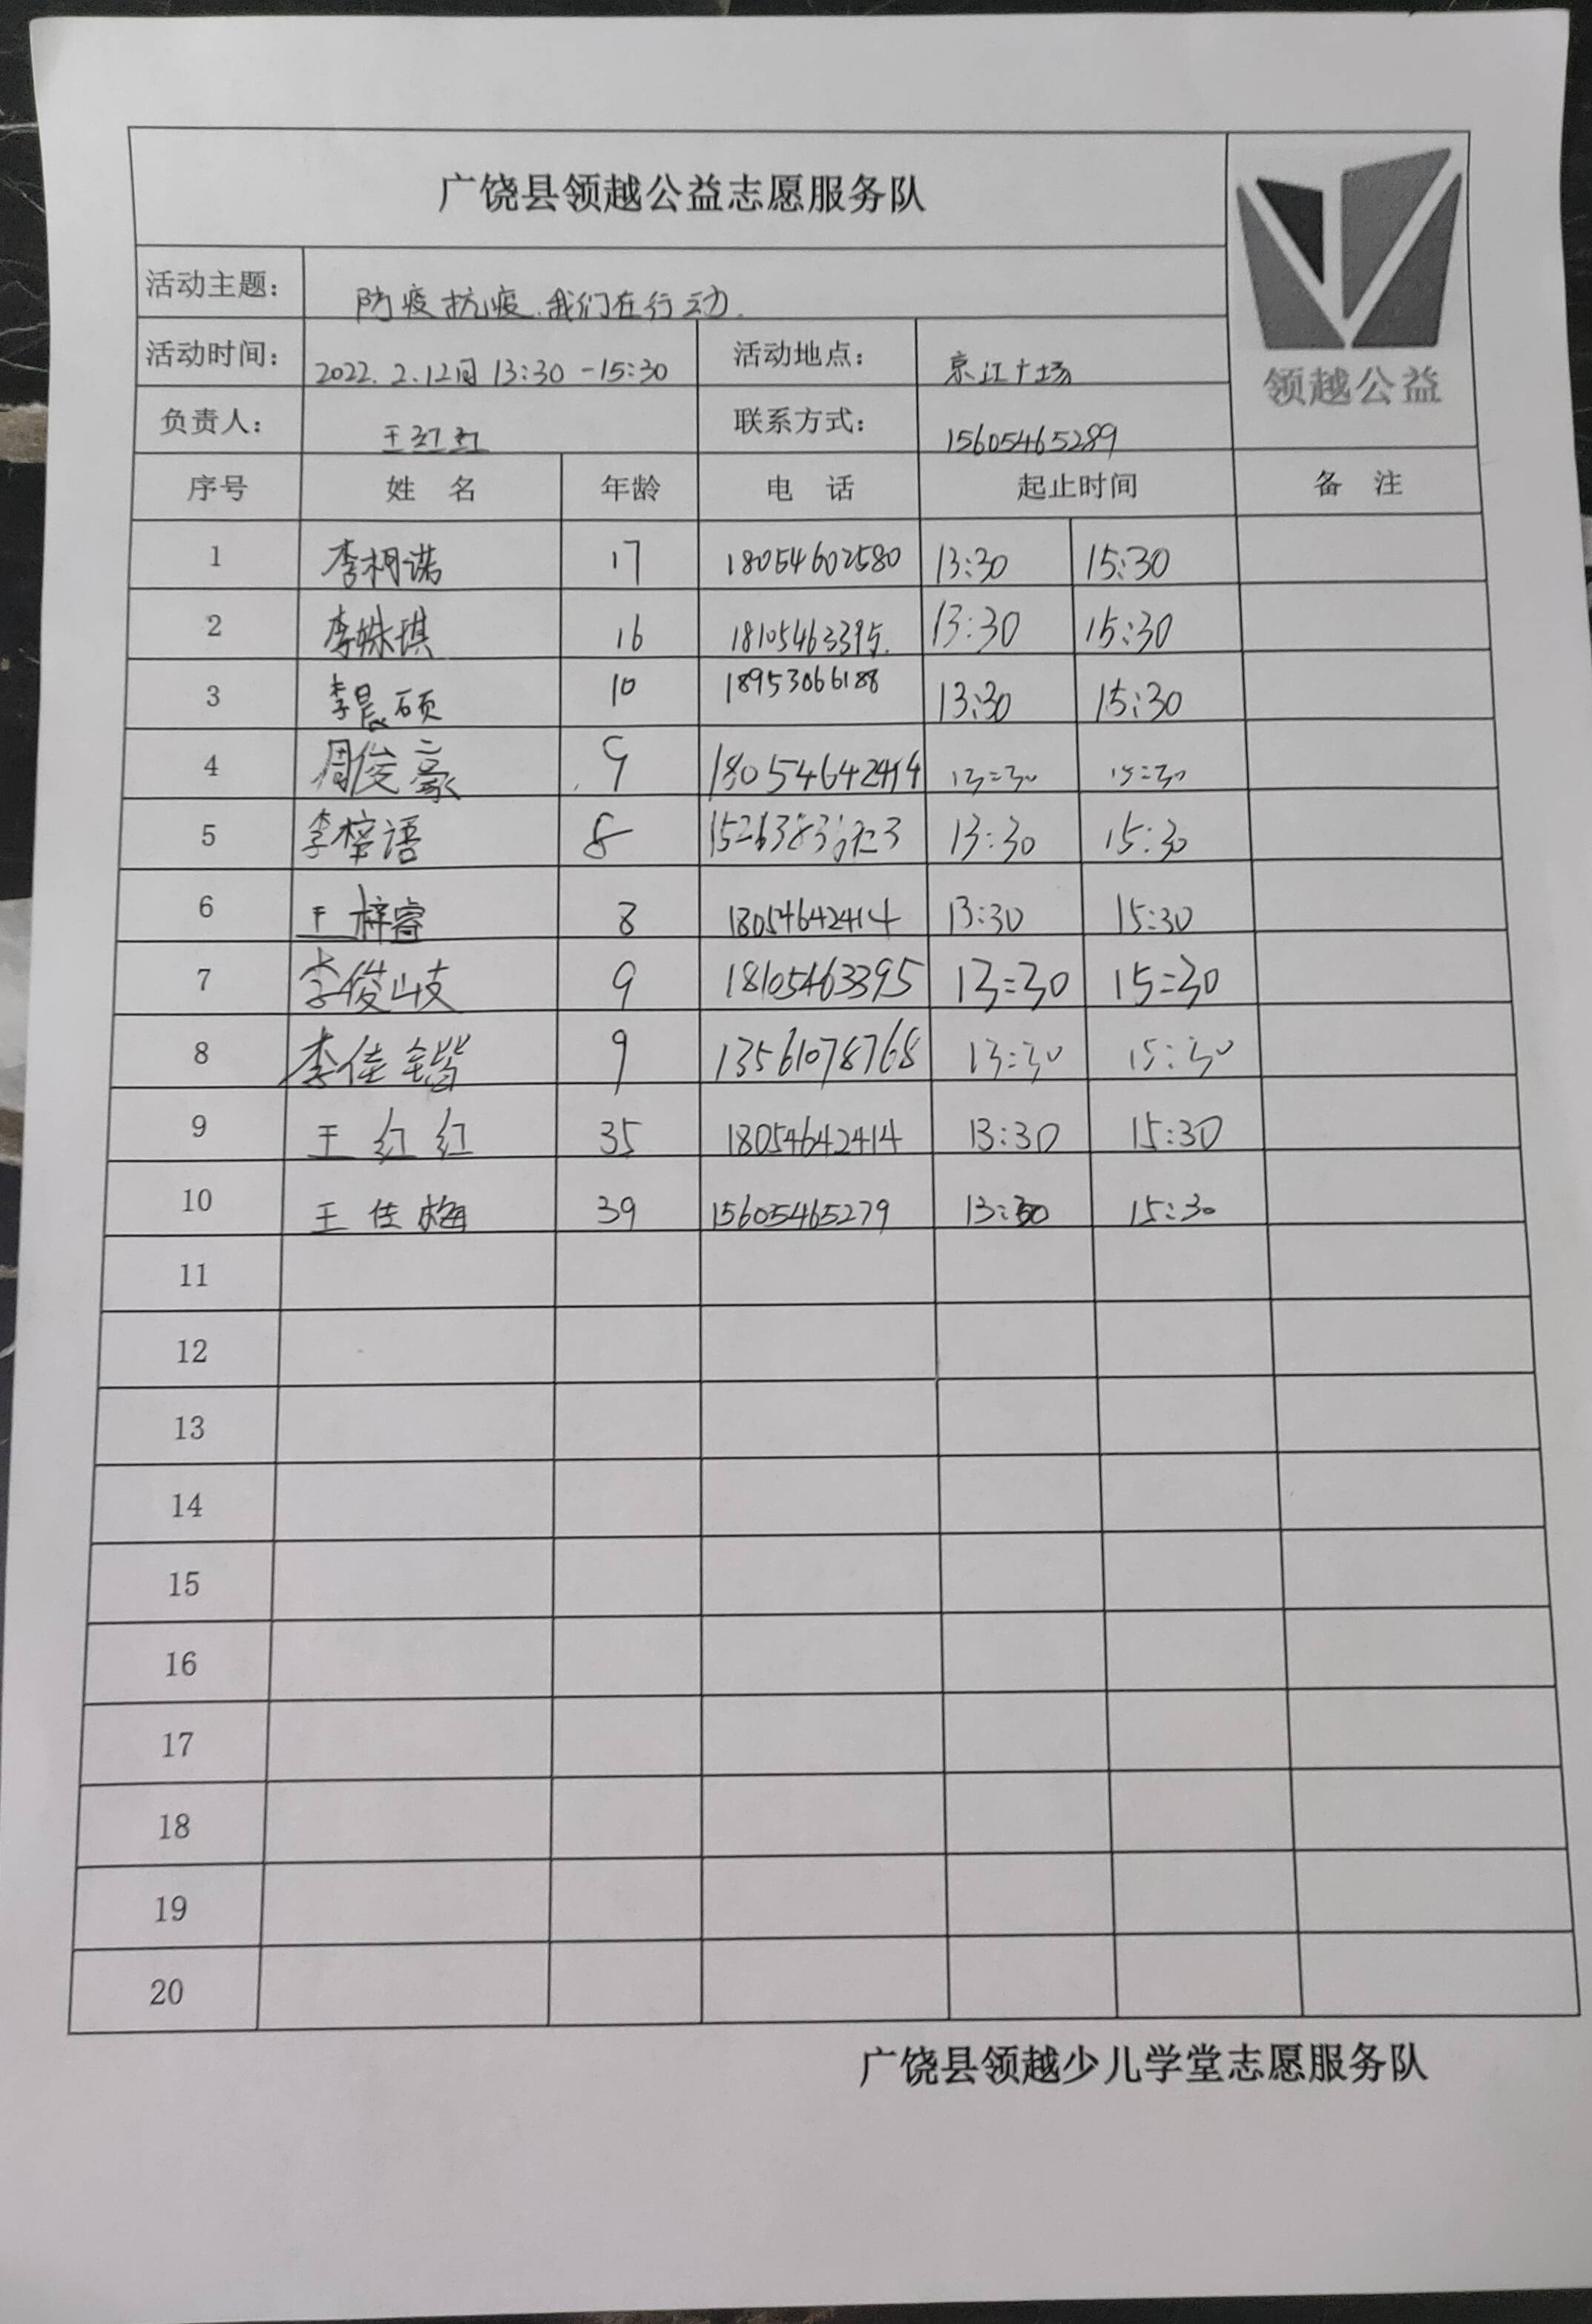 广饶县领越公益志愿服务队
领越公益
活动主题： 防疫抗疫.我们在行动.
活动时间： 2022.2.12日 13:30-15:30 活动地点： 京江广场
负责人： 王红红 联系方式： 15605465289
序号 姓 名 年龄 电 话 起止时间 备 注
1 李栩诺 17 18054602580 13:30 15:30
2 李姝琪 16 18105463395. 13:30 15:30
3 李晨硕 10 18953066188 13:30 15:30
4 周俊豪 9 18054642414 13:30 15:30
5 李梓语 8 13:30 15:30
6 王梓睿 8 18054642414 13:30 15:30
7 李俊岐 9 18105463395 13:30 15:30
8 李佳锴 9 13561078768 13:30 15:30
9 王红红 35 18054642414 13:30 15:30
10 王佳梅 39 15605465279 13:30 15:30
11
12
13
14
15
16
17
18
19
20
广饶县领越少儿学堂志愿服务队